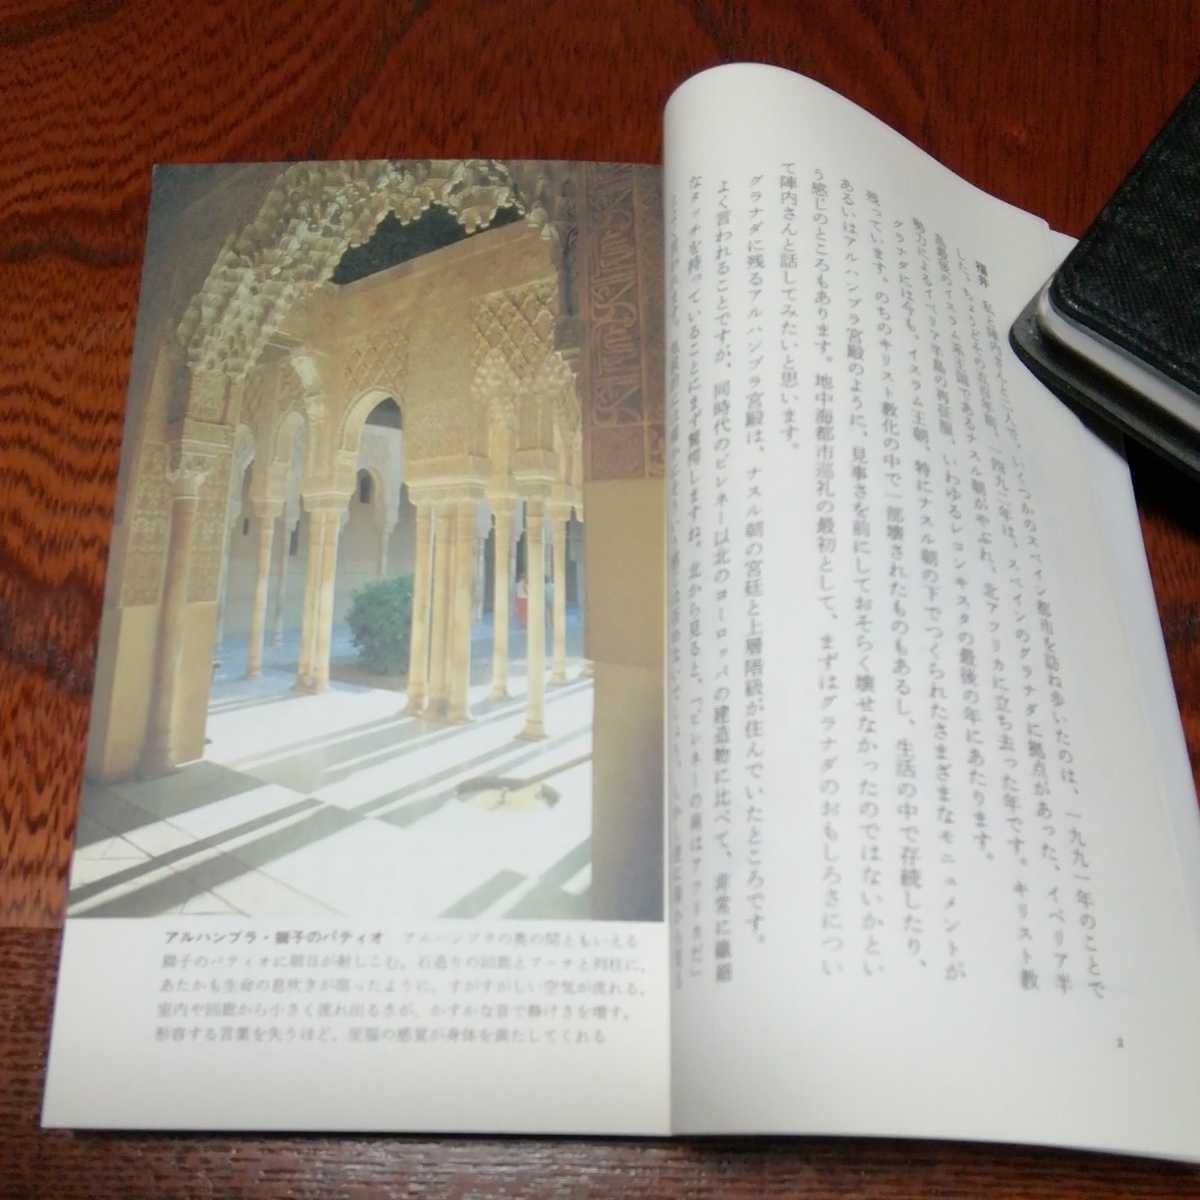 アルハンブラ・獅子のパティオ　アルハンブラの奥の間ともいえる
獅子のパティオに朝日が射しこむ。石造りの回廊とアーチと列柱に、
あたかも生命の息吹きが宿ったように、すがすがしい空気が流れる。
室内や回廊から小さく流れ出る水が、かすかな音で静けさを増す。
形容する言葉を失うほど、至福の感覚が身体を満たしてくれる
福井　私と陣内さんと二人で、いくつかのスペイン都市を訪ね歩いたのは、一九九一年のことで
した。ちょうどその五百年前、一四九一年は、スペインのグラナダに拠点があった、イベリア半
島最後のイスラム系王国であるナスル朝がやぶれ、北アフリカに立ち去った年です。キリスト教
勢力によるイベリア半島の再征服、いわゆるレコンキスタの最後の年にあたります。
グラナダには今も、イスラム王朝、特にナスル朝の下でつくられたさまざまなモニュメントが
残っています。のちのキリスト教化の中で一部壊されたものもあるし、生活の中で存続したり、
あるいはアルハンブラ宮殿のように、見事さを前にしておそらく壊せなかったのではないかとい
う感じのところもあります。地中海都市巡礼の最初として、まずはグラナダのおもしろさについ
て陣内さんと話してみたいと思います。
グラナダに残るアルハンブラ宮殿は、ナスル朝の宮廷と上層階級が住んでいたところです。
よく言われることですが、同時代のピレネー以北のヨーロッパの建造物に比べて、非常に繊細
なタッチを持っていることにまず驚愕しますね。北から見ると、「ピレネーの南はアフリカだ」